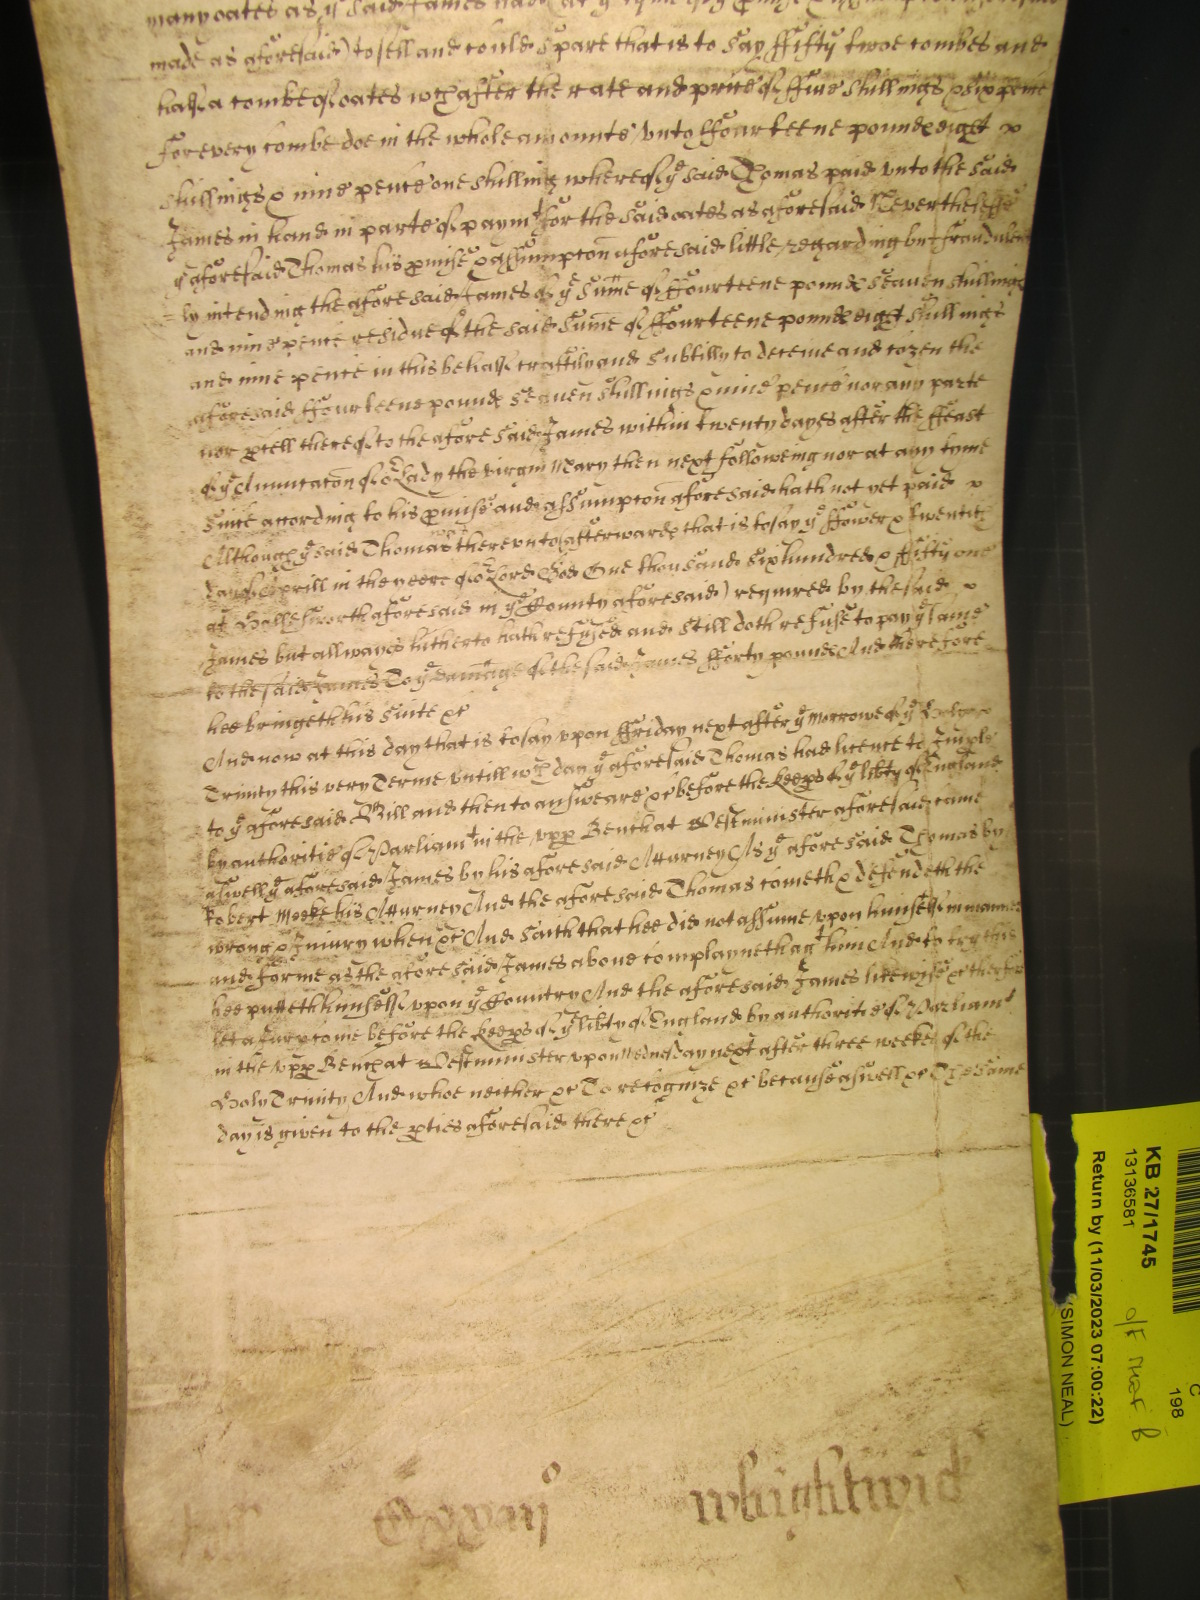 many oates as ye said James had at ye tyme of ye
made as aforesaid) to sell and could spare that is to say ffifty twoe combes and
halfe a combe of oates wch after the rate and price of ffive shillings & six pence
for every combe doe in the whole amounte unto ffourteene pounde eight
shillings & nine pence one shilling whereof ye said Thomas paid unto the said
James in hand in parte of paymt for the said oates as aforesaid Neverthelesse
ye aforesaid Thomas his pmise & assumpton aforesaid little regarding but fraudulent
=ly intending the aforesaid James of ye sume of ffourteene pounde seaven shillings
and nine pence residue of the said sume of ffourteene pounde eight shillings
and nine pence in this behalfe craftily and subtilly to deceive and cozen the
aforesaid ffourteene pounde seaven shillings & nine pence nor any parte
nor pcell thereof to the aforesaid James within twenty dayes after the ffeast
of ye Annuntacon of or Lady the virgin Mary then next followeing nor at any tyme
since according to his pmise and assumpton aforesaid hath not yet paid
Although ye said Thomas was thereunto afterwarde that is to say ye ffower & twentith
day of Aprill in the yeere of or Lord God One thousand six hundred & ffifty one
at Hallesworth aforesaid in ye County aforesaid) required by the said
James but allwayes hitherto hath refused and still doth refuse to pay ye same
to the said James To ye damage of the said James fforty pounde And therefore
hee bringeth his suite &c
And now at this day that is to say upon ffriday next after ye Morrowe of ye Holy
Trinity this very Terme untill wch day ye aforesaid Thomas had licence to Imple
to ye aforesaid Bill and then to answeare &c before the keeps of ye libty of England
by authoritie of Parliamt in the upp Bench at Westminister aforesaid came
aswell ye aforesaid James by his aforesaid Atturney As ye aforesaid Thomas by
Robert Meeke his Atturney And the aforesaid Thomas cometh & defendeth the
wrong & Iniury when &c And saith that hee did not assume upon himselfe in manner
and forme as the aforesaid James above complayneth agt him And to try this
hee putteth himselfe upon ye Country And the aforesaid James likewise &c therfore
let a Jury come before the keeps of ye libty of England by authoritie of Parliamt
in the upp Bench at Westminister upon Wednesday next after three weekes of the
Holy Trinity And whoe neither &c To recognize &c because aswell &c The same
day is given to the pties aforesaid there &c
KB 27/1745
13136581
Return by (11/03/2023 07:00:22)
(SIMON NEAL)
C
198